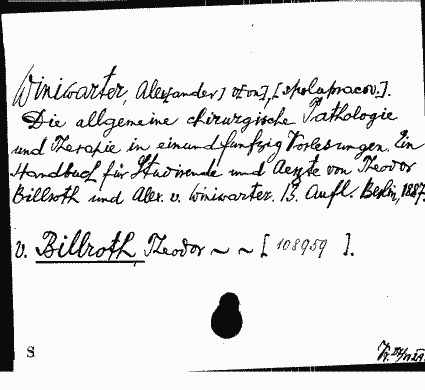 Winiwarter, Alex[ander] v[on], [spolupracov.].
Die allgemeine chirurgische Pathologie
und Therapie in einundfünfzig Vorlesungen. Ein
Handbuch für Studirende und Aerzte von Theodor
Billroth und Alex. v. Winiwarter. 13. Aufl. Berlin, 1887.
v. Billroth, Theodor ~ ~ [ 108959 ].
S